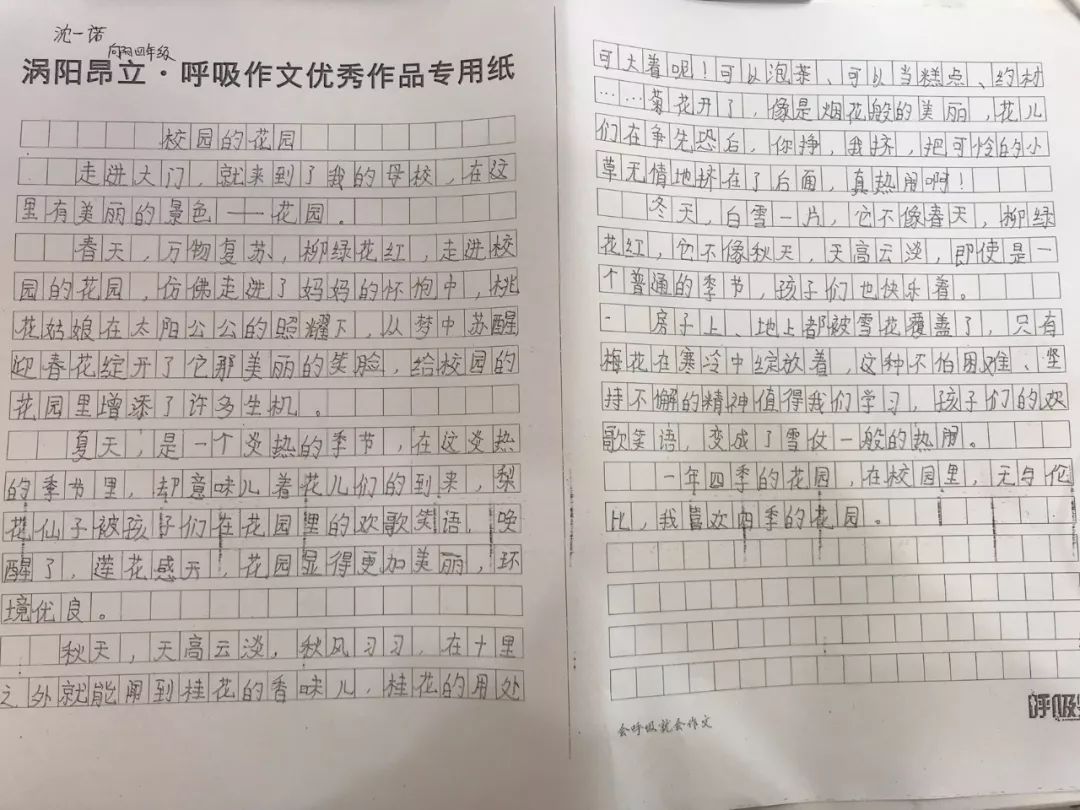 沈一诺
向阳四年级
涡阳昂立·呼吸作文优秀作品专用纸
校园的花园
走进大门，就来到了我的母校，在这
里有美丽的景色——花园。
春天，万物复苏，柳绿花红，走进校
园的花园，仿佛走进了妈妈的怀抱中，桃
花姑娘在太阳公公的照耀下，从梦中苏醒
迎春花绽开了它那美丽的笑脸，给校园的
花园里增添了许多生机。
夏天，是一个炎热的季节，在这炎热
的季节里，却意味儿着花儿们的到来，梨
花仙子被孩子们在花园里的欢歌笑语，唤
醒了，莲花盛开，花园显得更加美丽，环
境优良。
秋天，天高云淡，秋风习习，在十里
之外就能闻到桂花的香味儿，桂花的用处
可大着呢！可以泡茶、可以当糕点、药材
……菊花开了，像是烟花般的美丽，花儿
们在争先恐后，你挣，我挤，把可怜的小
草无情地挤在了后面，真热闹啊！
冬天，白雪一片，它不像春天，柳绿
花红，它不像秋天，天高云淡，即使是一
个普通的季节，孩子们也快乐着。
房子上，地上都被雪花覆盖了，只有
梅花在寒冷中绽放着，这种不怕困难、坚
持不懈的精神值得我们学习，孩子们的欢
歌笑语，变成了雪仗一般的热闹。
一年四季的花园，在校园里，无与伦
比，我喜欢四季的花园。
会呼吸就会作文
呼吸